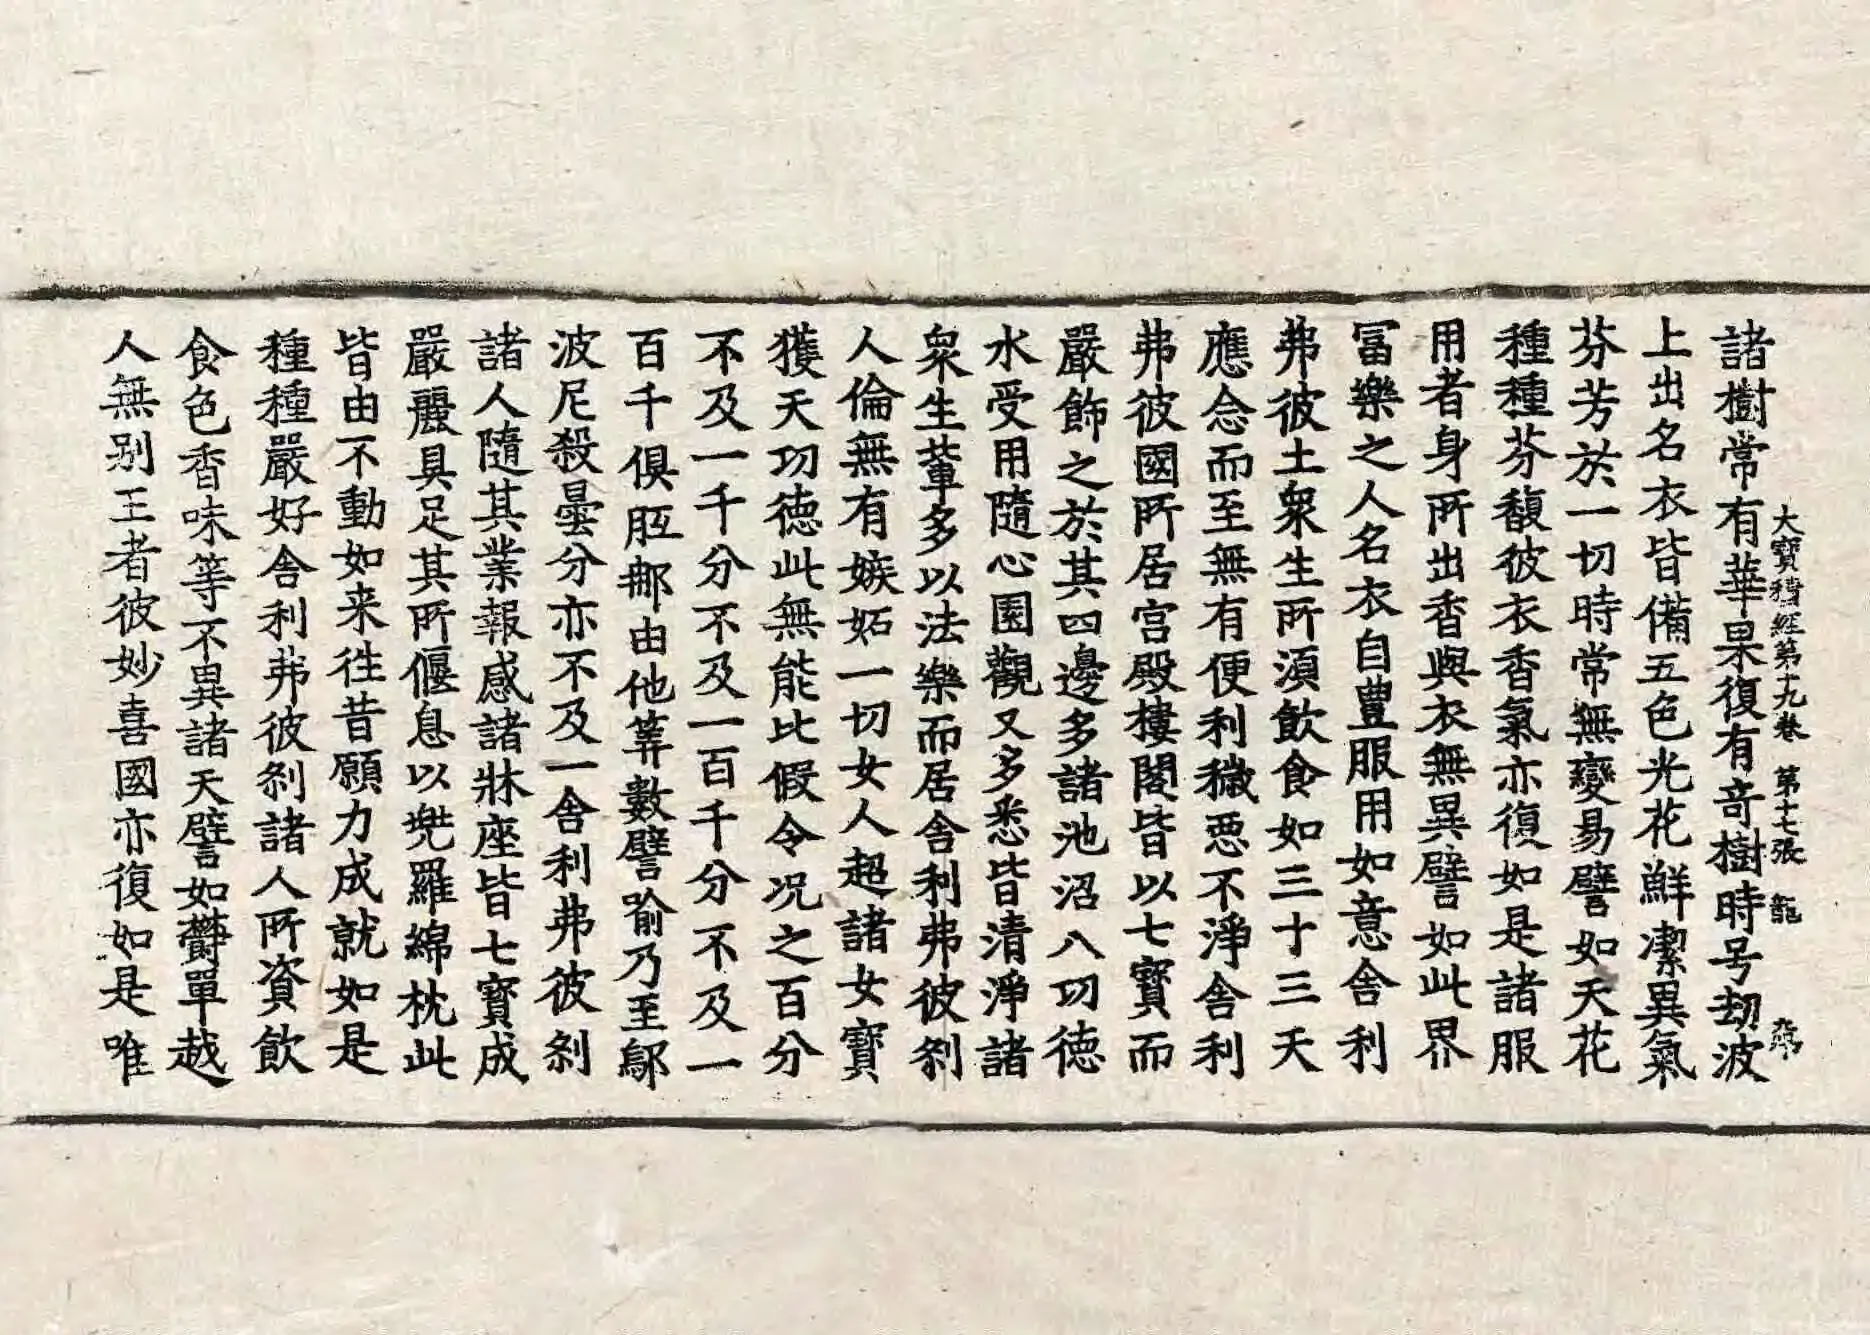 大寶積經第十九卷 第十七張 龍
諸樹常有華果復有奇樹時号劫波
上出名衣皆備五色光花鮮潔異氣
芬芳於一切時常無變易譬如天花
種種芬馥彼衣香氣亦復如是諸服
用者身所出香與衣無異譬如此界
冨樂之人名衣自豊服用如意舍利
弗彼土衆生所湏飲食如三十三天
應念而至無有便利穢惡不淨舍利
弗彼國所居宮殿樓閣皆以七寶而
嚴飾之於其四邊多諸池沼八功德
水受用隨心園觀又多悉皆清淨諸
衆生輩多以法樂而居舍利弗彼刹
人倫無有嫉妬一切女人超諸女寶
獲天功德此無能比假令况之百分
不及一千分不及一百千分不及一
百千俱胝那由他筭數譬喻乃至鄔
波尼殺曇分亦不及一舍利弗彼刹
諸人隨其業報感諸牀座皆七寶成
嚴麗具足其所偃息以兠羅綿枕此
皆由不動如来徃昔願力成就如是
種種嚴好舍利弗彼刹諸人所資飲
食色香味等不異諸天譬如欝單越
人無别王者彼妙喜國亦復如是唯